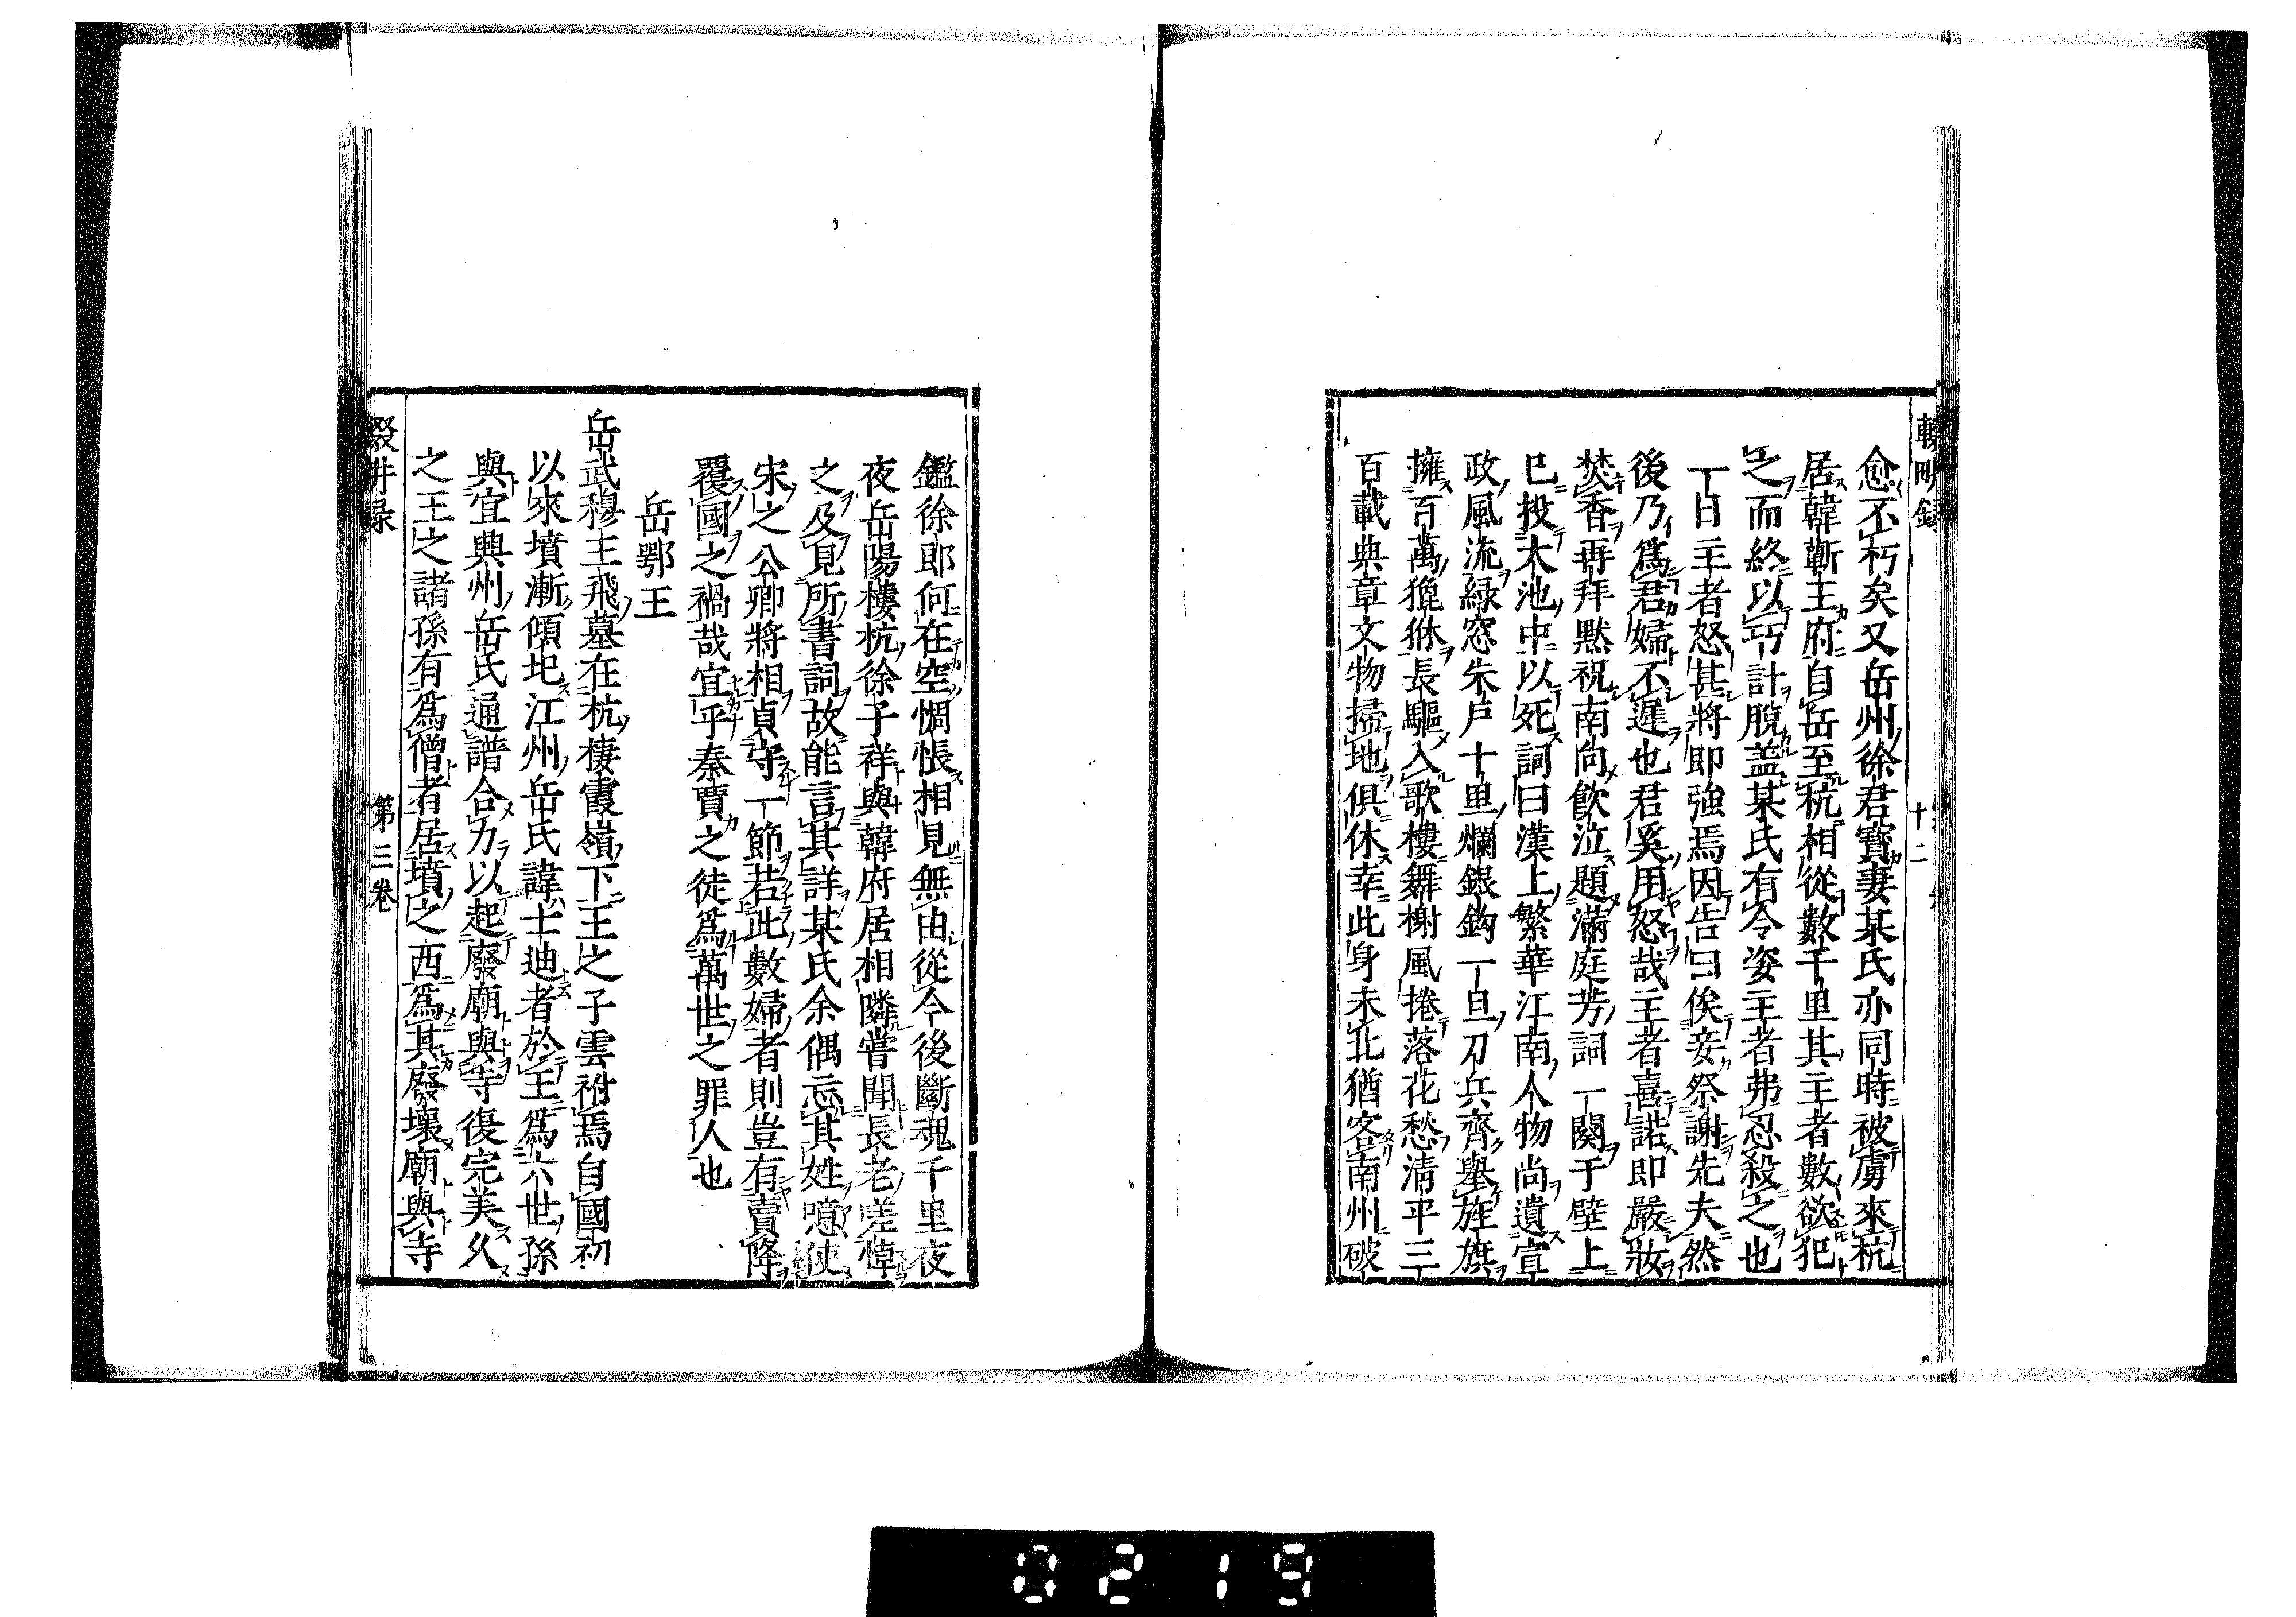 愈不朽矣又岳州徐君寶妻某氏亦同時被虜來杭
居韓蘄王府自岳至杭相從數千里其主者數欲犯
之而終以巧計脫盖某氏有令姿主者弗忍殺之也
一日主者怒甚將即強焉因告曰俟妾祭謝先夫然
後乃爲君婦不遲也君奚用怒哉主者喜諾即嚴妝
焚香再拜默祝南向飲泣題滿庭芳詞一闋于壁上
已投大池中以死詞曰漢上繁華江南人物尚遺宣
政風流緑窓朱戶十里爛銀鈎一旦刀兵齊舉旌旗
擁百萬貔貅長驅入歌樓舞榭風捲落花愁清平三
百載典章文物掃地俱休幸此身未北猶客南州破
鑑徐郎何在空惆悵相見無由從今後斷魂千里夜
夜岳陽樓杭徐子祥與韓府居相隣嘗聞長老嗟悼
之及見所書詞故能言其詳某氏余偶忘其姓噫使
宋之公卿將相貞守一節若此數婦者則豈有賣降
覆國之禍哉宜乎秦賈之徒爲萬世之罪人也
岳鄂王
岳武穆王飛墓在杭棲霞嶺下王之子雲祔焉自國初
以來墳漸傾圮江州岳氏諱士迪者於王爲六世孫
與宜興州岳氏通譜合力以起廢廟與寺復完美久
之王之諸孫有爲僧者居墳之西爲其廢壞廟與寺
輟畊録
十二
第三卷
0219